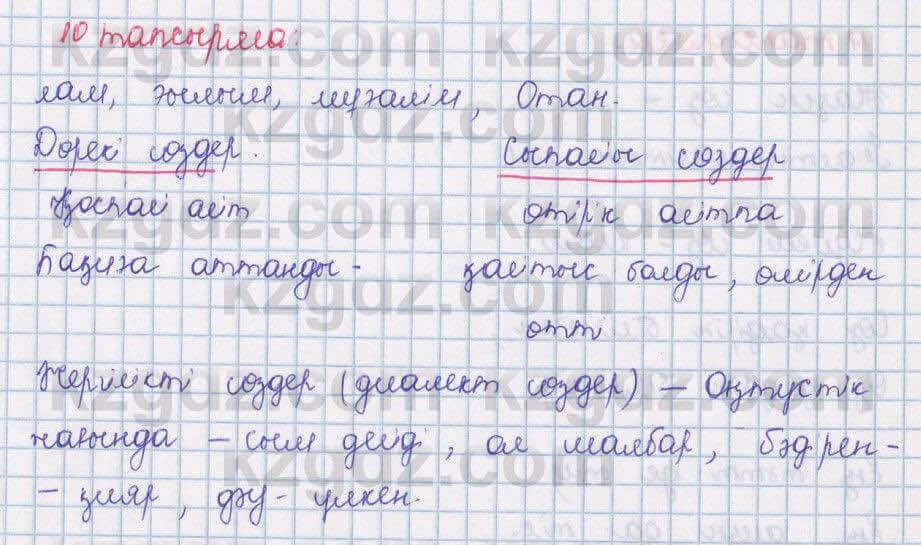 10 тапсырма:
лам, ғылым, мұғалім, Отан.
Дөрекі сөздер. Сыпайы сөздер
Қоспай айт өтірік айтпа
Бақиға аттанды - қайтыс болды, өмірден
өтті
Жергілікті сөздер (диалект сөздер) – Оңтүстік
жағында – сым дейді, ол шалбар, бәдрен-
- қияр, дәу - үлкен.
kzgdz.com